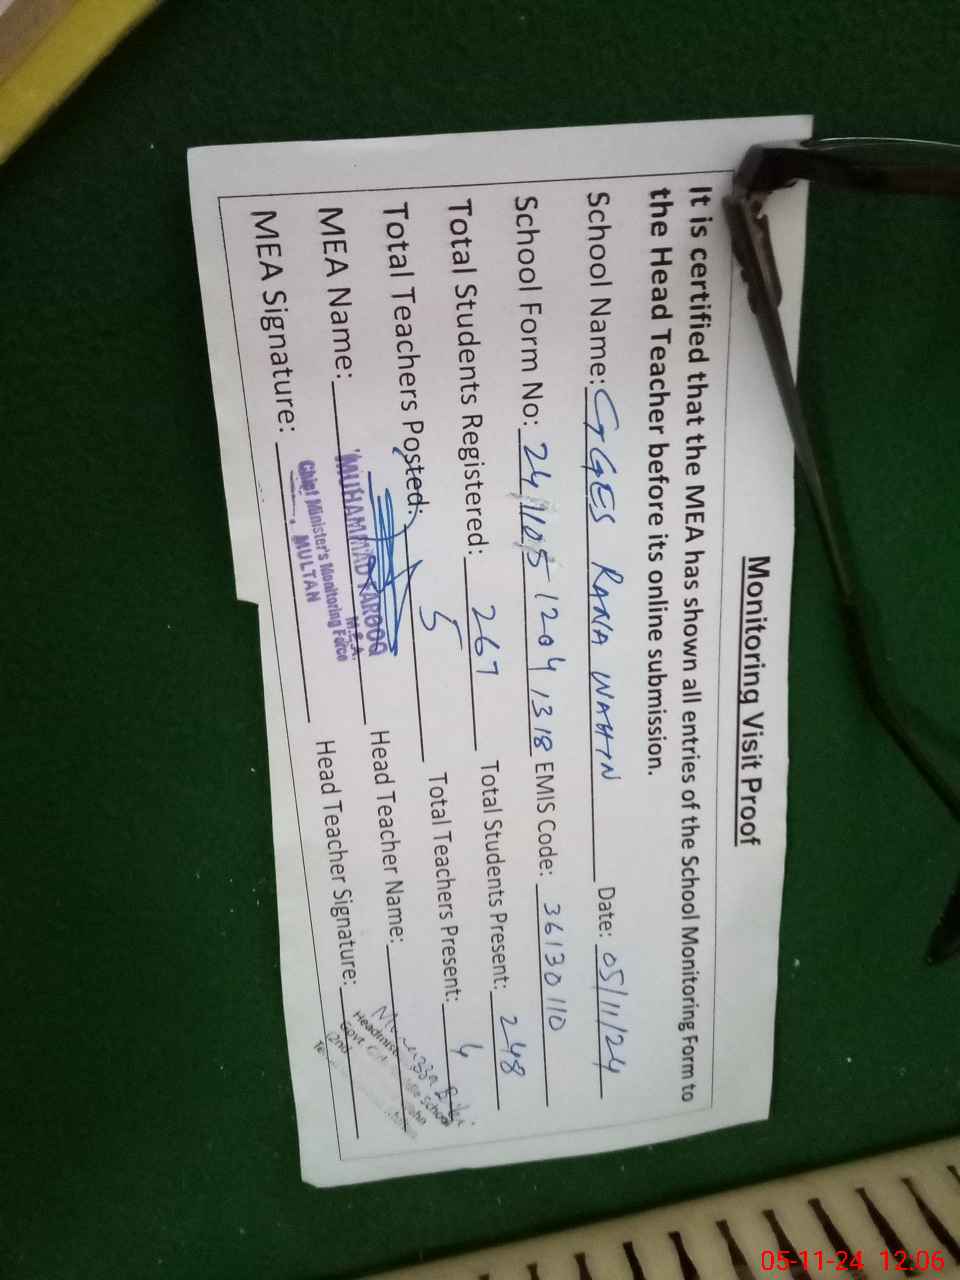 Monitoring Visit Proof
It is certified that the MEA has shown all entries of the School Monitoring Form to
the Head Teacher before its online submission.
School Name: GGES RANA WAHIN Date: 05/11/24
School Form No: 241105 1204 1318 EMIS Code: 36130110
Total Students Registered: 267 Total Students Present: 248
Total Teachers Posted: 5 Total Teachers Present: 4
MEA Name: MUHAMMAD FAROOQ Head Teacher Name:
M.E.A.
MEA Signature: Chief Minister's Monitoring Force Head Teacher Signature:
MULTAN
Govt.
School
05-11-24 12:06